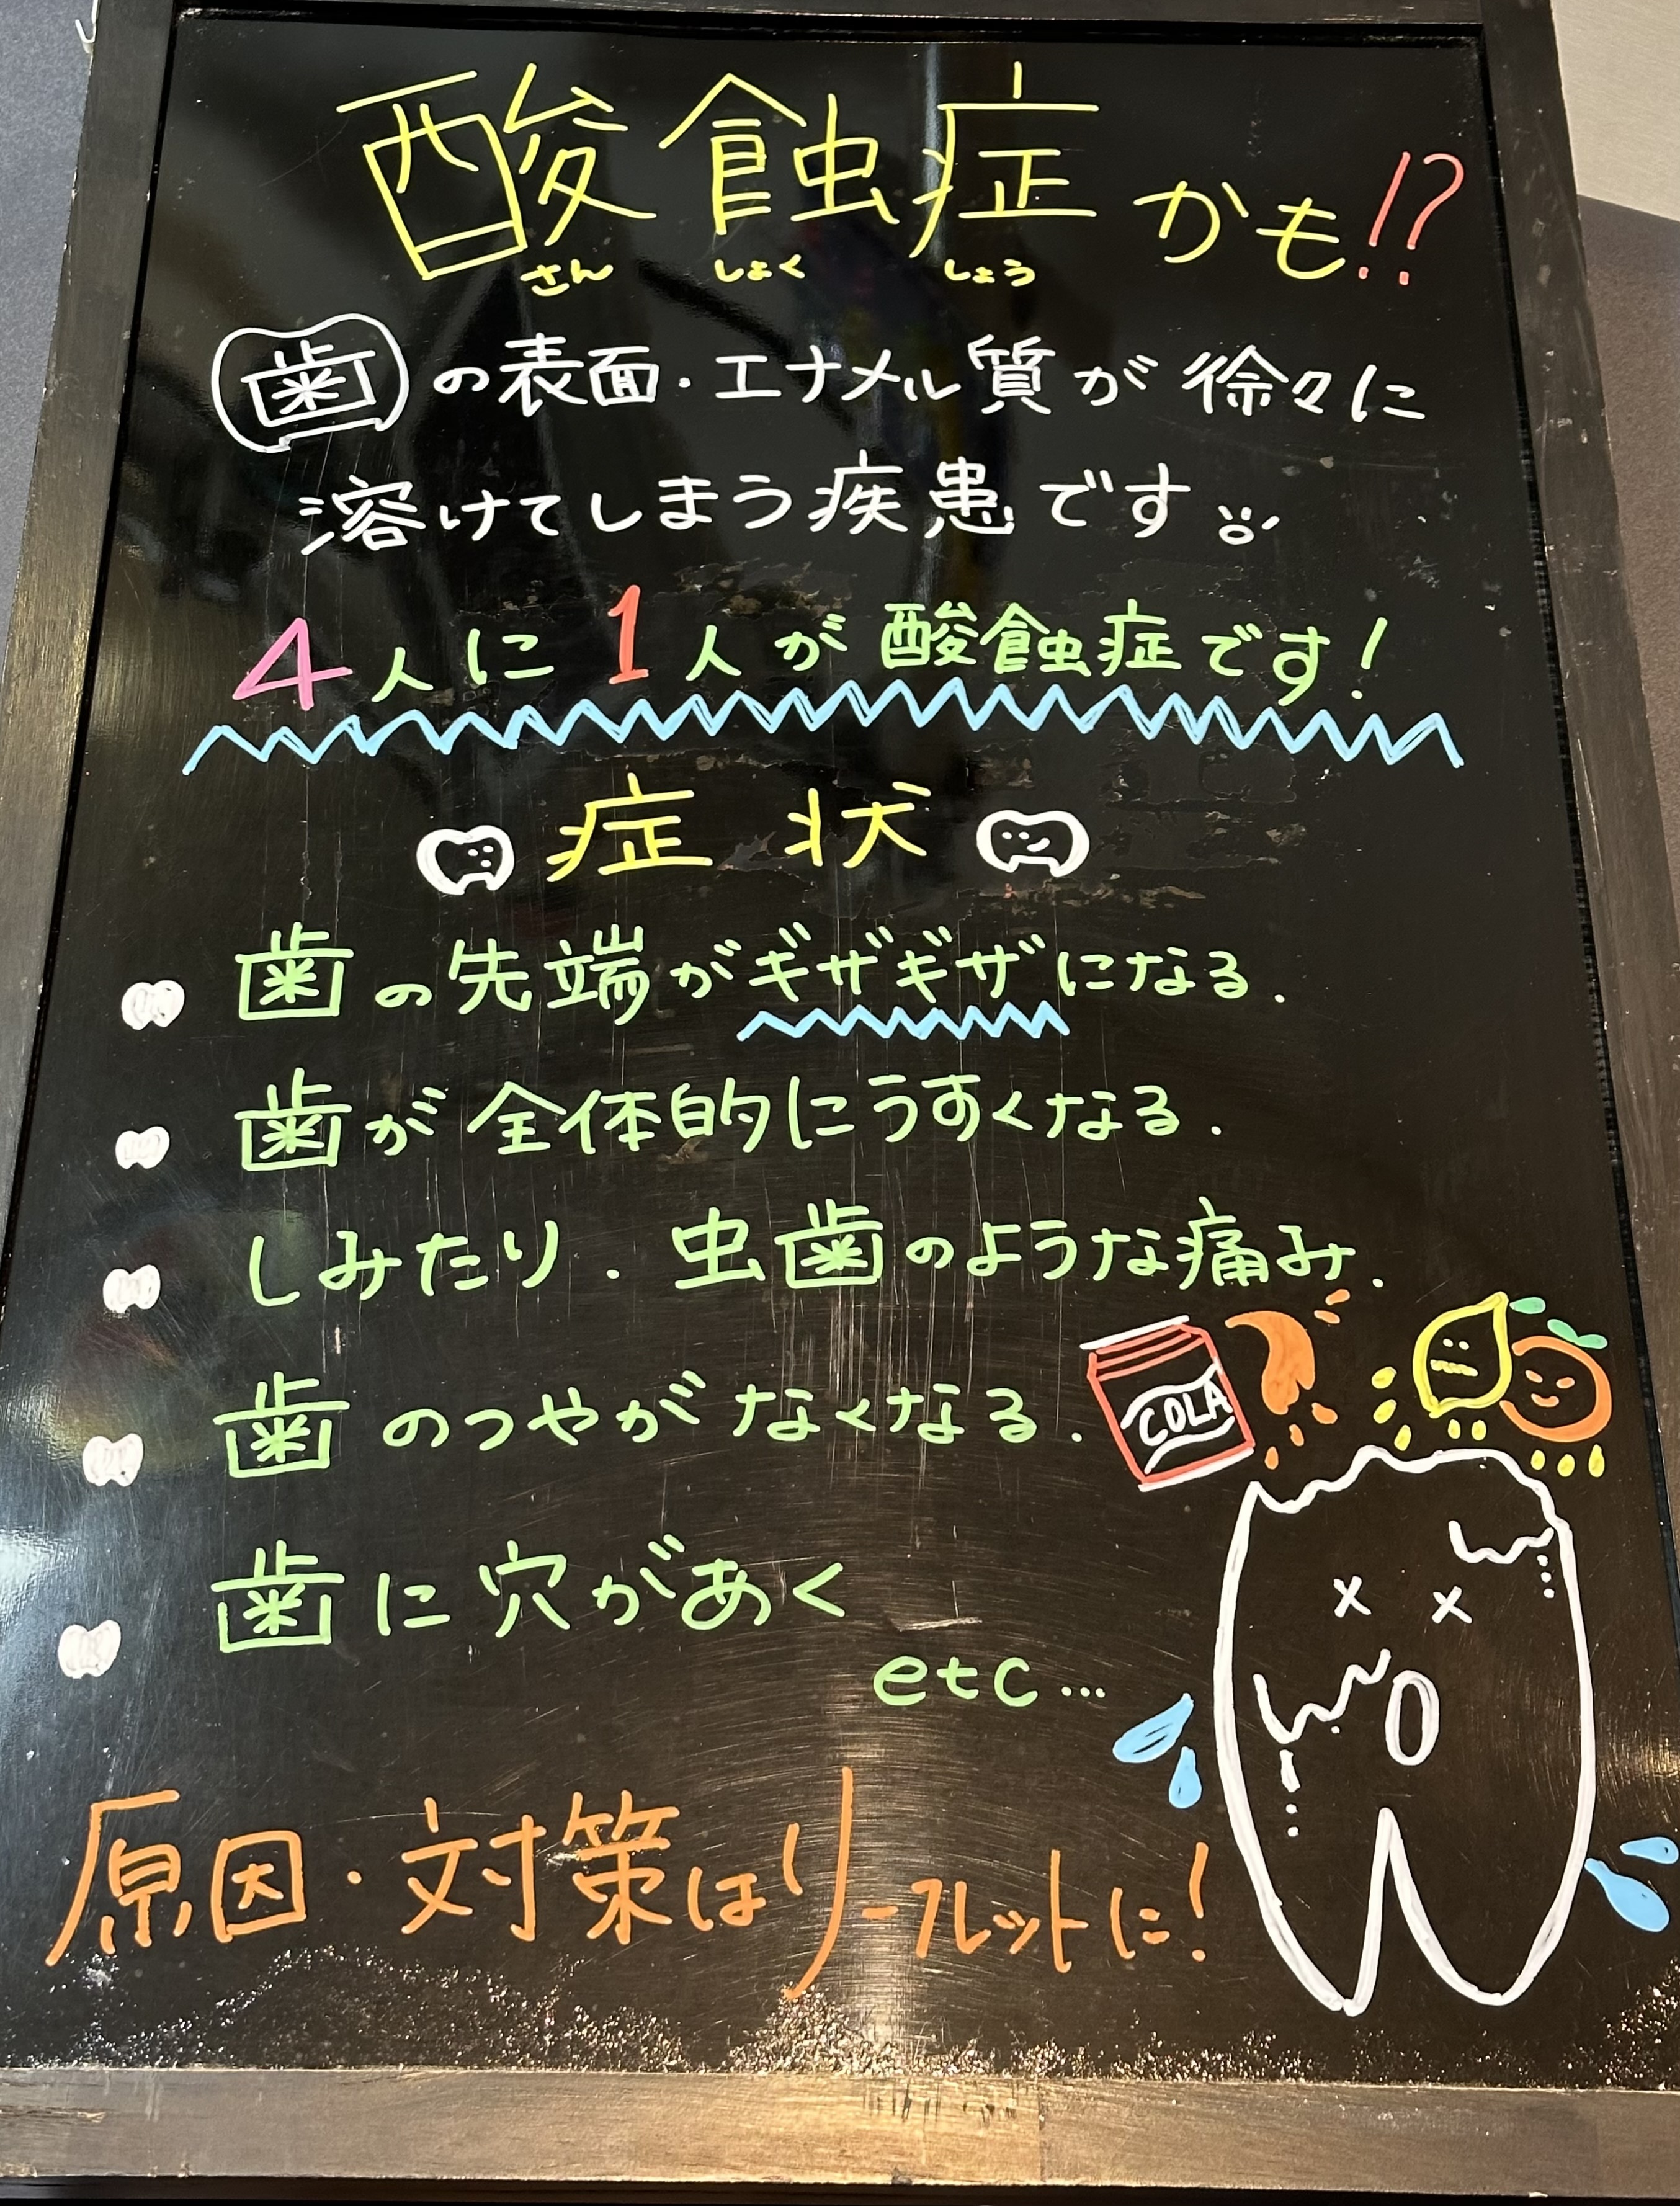 酸蝕症かも!?
さん しょく しょう
歯の表面・エナメル質が徐々に
溶けてしまう疾患です。
4人に1人が酸蝕症です!
症状
歯の先端がギザギザになる.
歯が全体的にうすくなる.
しみたり.虫歯のような痛み.
歯のつやがなくなる.
COLA
歯に穴があく
etc…
原因・対策はリーフレットに!